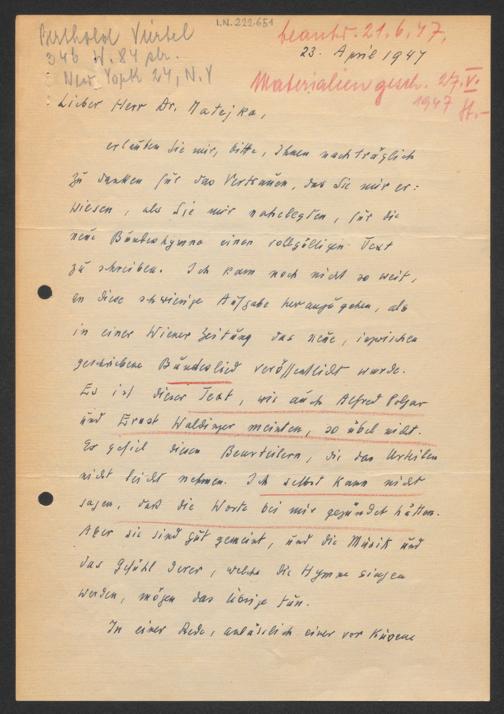 I.N. 222.651
Berthold Viertel
346 W. 84 str.
New York 24, N.Y
beantw. 21.6.47.
23. April 1947
Materialien gesch. 27.V.
1947
Lieber Herr Dr. Matejka,
erlauben Sie mir, bitte, Ihnen nachträglich
zu danken für das Vertrauen, das Sie mir er=
wiesen, als Sie mir nahelegten, für die
neue Bundeshymne einen vollgültigen Text
zu schreiben. Ich kam noch nicht so weit,
an diese schwierige Aufgabe heranzugehen, als
in einer Wiener Zeitung das neue, inzwischen
geschriebene Bundeslied veröffentlicht wurde.
Es ist dieser Text, wie auch Alfred Polgar
und Ernst Waldinger meinten, so übel nicht.
Er gefiel diesen Beurteilern, die das Urteilen
nicht leicht nehmen. Ich selbst kann nicht
sagen, daß die Worte bei mir gezündet hätten.
Aber sie sind gut gemeint, und die Musik und
das Gefühl derer, welche die Hymne singen
werden, mögen das Übrige tun.
In einer Rede, anlässlich einer vor Kurzem